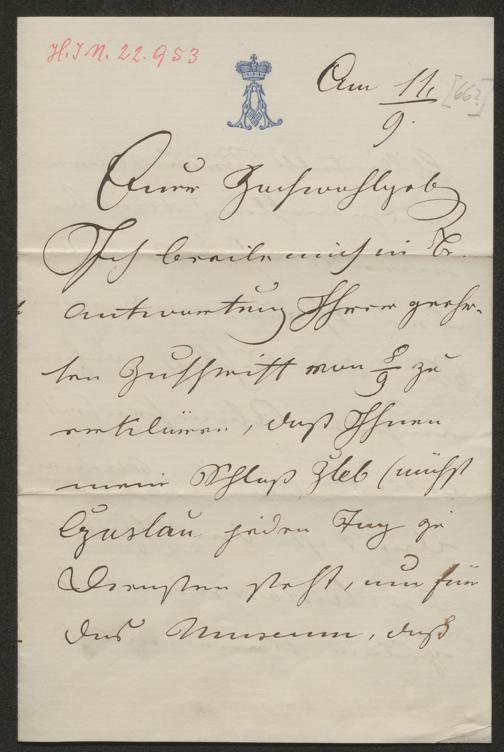 H.I.N. 22.953
Am 11./9. [66?]
Euer Hochwohlgeb
Ich beeile mich in Be
antwortung Ihrer geehr-
ten Zuschrift vom 8/9 zu
erklären, daß Ihnen
mein Schloß Zleb (nächst
Czaslau jeden Tag zu
Diensten steht, um für
das Museum, daß